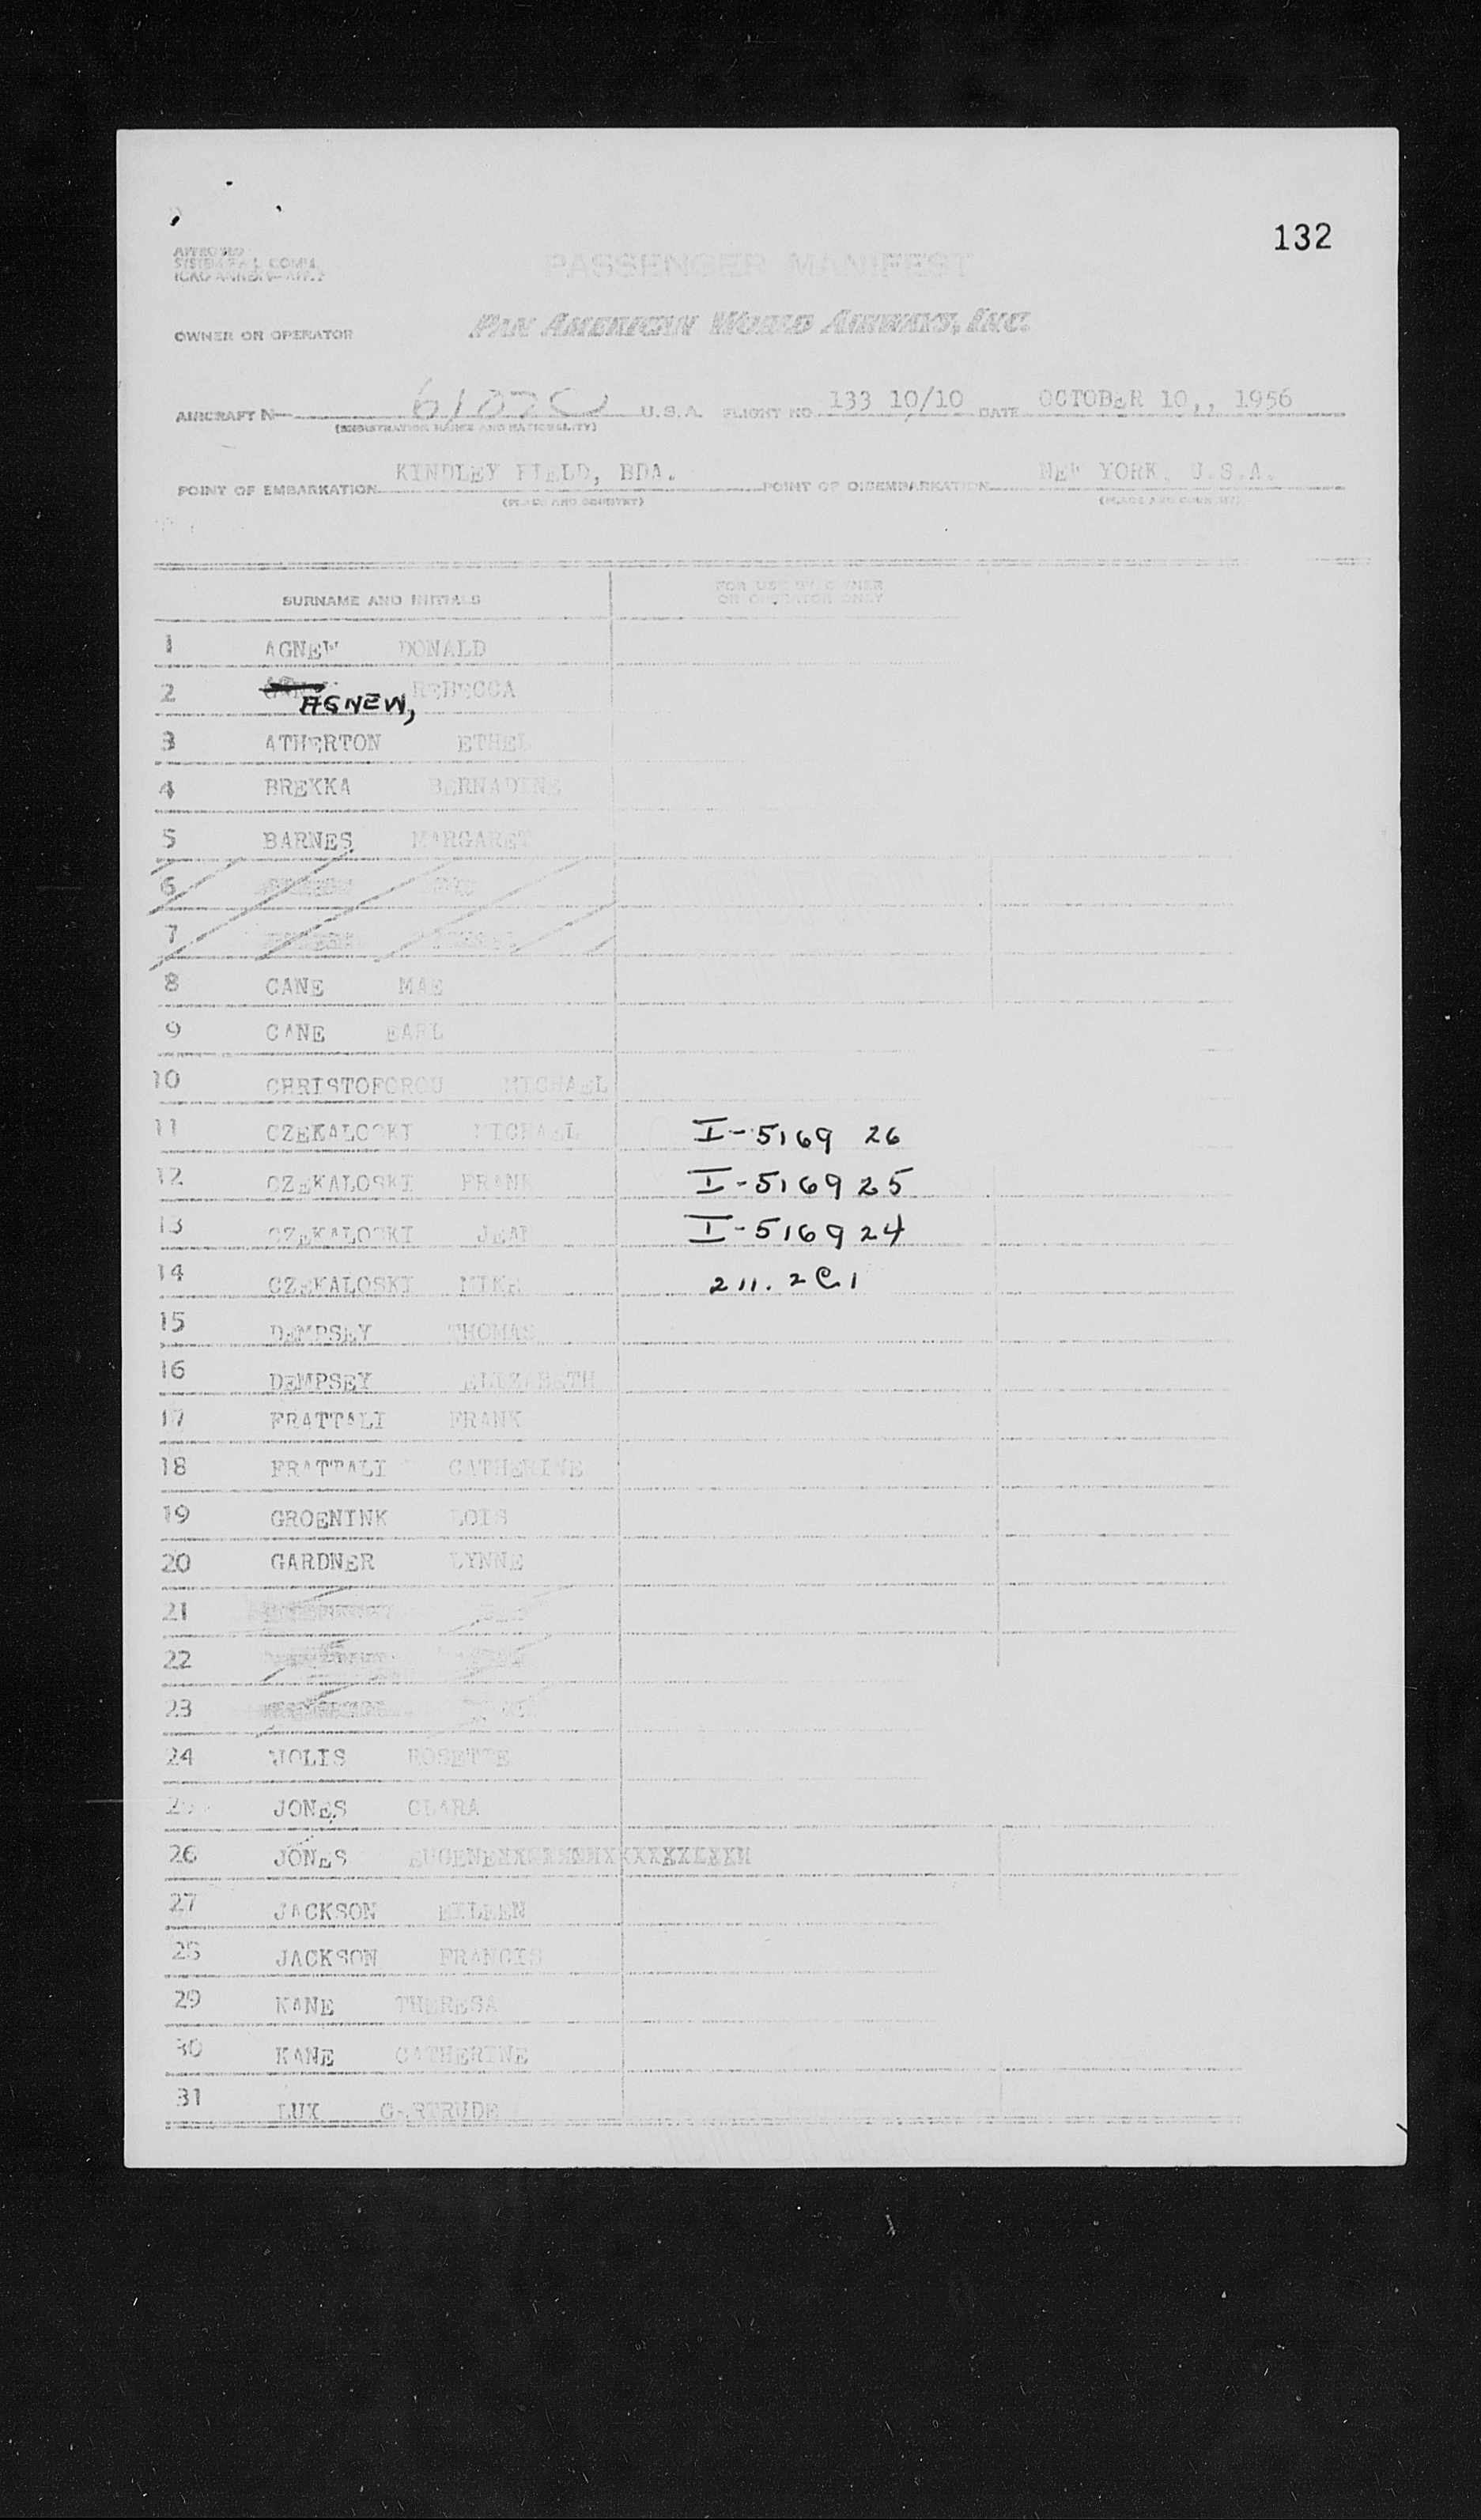 132
PASSENGER MANIFEST
OWNER OR OPERATOR PAN AMERICAN WORLD AIRWAYS, INC.
AIRCRAFT N U.S.A. FLIGHT NO 133 10/10 DATE OCTOBER 10,, 1956
(REGISTRATION MARKS AND NATIONALITY)
POINT OF EMBARKATION KINDLEY FIELD, BDA. POINT OF DISEMBARKATION NEW YORK, U.S.A.
(PLACE AND COUNTRY) (PLACE AND COUNTRY)
SURNAME AND INITIALS FOR USE BY OWNER
OR OPERATOR ONLY
1 AGNEW DONALD
2 REBECCA
AGNEW,
3 ATHERTON ETHEL
4 BREKKA BERNADINE
5 BARNES MARGARET
6
7
8 CANE MAE
9 CANE EARL
10 CHRISTOFOROU MICHAEL
11 CZEKALOSKI MICHAEL I-5169 26
12 CZEKALOSKI FRANK I-516925
13 CZEKALOSKI JEAN I-516924
14 CZEKALOSKI MIKE 211.2C1
15 DEMPSEY THOMAS
16 DEMPSEY ELIZABETH
17 FRATTALI FRANK
18 FRATTALI CATHERINE
19 GROENINK LOIS
20 GARDNER LYNNE
21
22
23
24 ROSETTE
25 JONES CLARA
26 JONES EUGENE
27 JACKSON EILEEN
28 JACKSON FRANCIS
29 KANE THERESA
30 KANE CATHERINE
31 LUX GERTRUDE